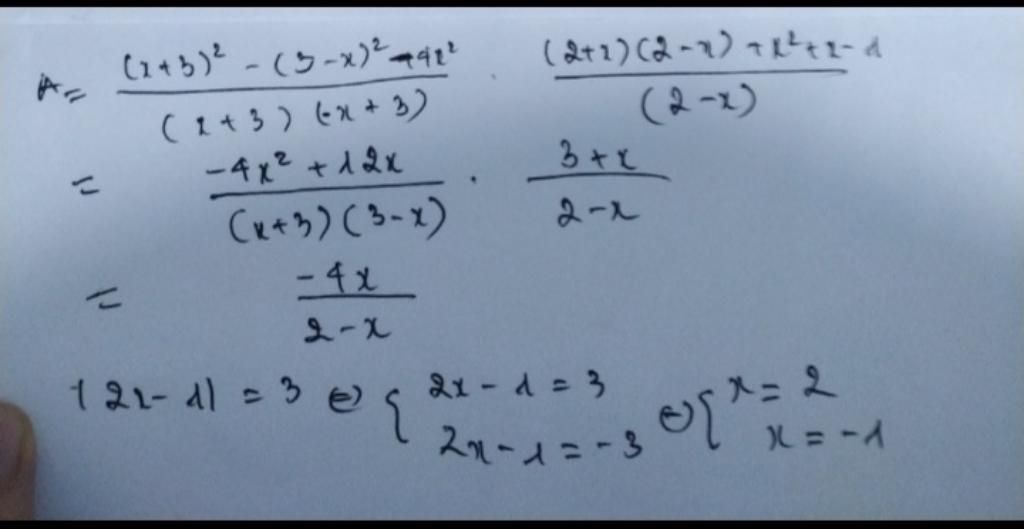 A = ((x+3)² - (3-x)² - 4x²) / ((x+3)(-x+3)) · ((2+x)(2-x) + x² + x - 1) / (2-x)
= (-4x² + 12x) / ((x+3)(3-x)) · (3+x) / (2-x)
= (-4x) / (2-x)
|2x-1| = 3 ⇔ { 2x-1 = 3 2x-1 = -3 ⇔ { x = 2 x = -1